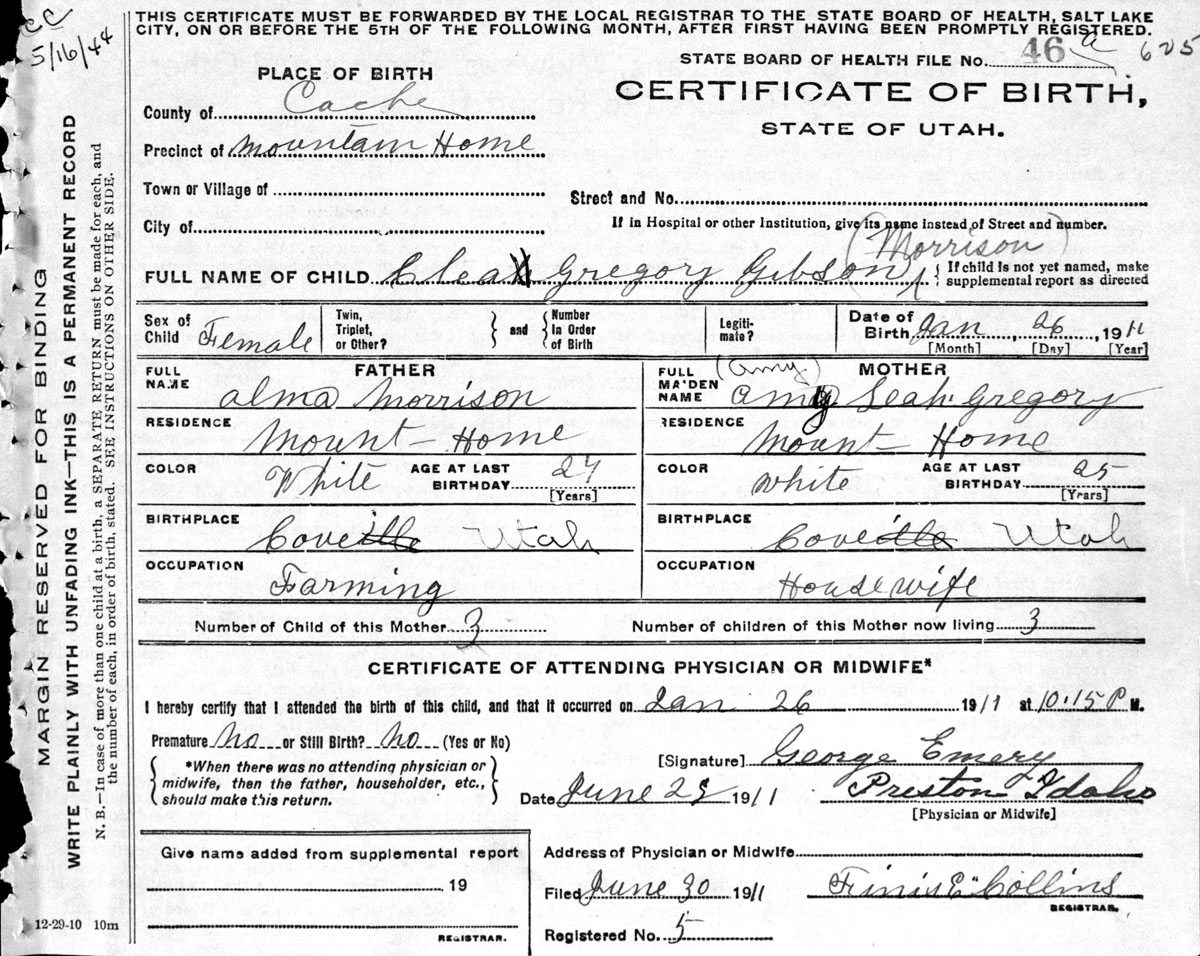 CC
5/16/44
THIS CERTIFICATE MUST BE FORWARDED BY THE LOCAL REGISTRAR TO THE STATE BOARD OF HEALTH, SALT LAKE
CITY, ON OR BEFORE THE 5TH OF THE FOLLOWING MONTH, AFTER FIRST HAVING BEEN PROMPTLY REGISTERED.
STATE BOARD OF HEALTH FILE No. 46 a 625
PLACE OF BIRTH
CERTIFICATE OF BIRTH,
STATE OF UTAH.
County of Cache
Precinct of Mountain Home
Town or Village of
Street and No.
City of
If in Hospital or other Institution, give its name instead of Street and number.
(Morrison)
FULL NAME OF CHILD Clea Gregory Gibson
If child is not yet named, make
supplemental report as directed
Sex of Child Female
Twin, Triplet, or Other?
and
Number In Order of Birth
Legiti-mate?
Date of Birth Jan 26, 1911
[Month] [Day] [Year]
FATHER
FULL NAME Alma Morrison
RESIDENCE Mount- Home
COLOR White AGE AT LAST BIRTHDAY 27 [Years]
BIRTHPLACE Coveille Utah
OCCUPATION Farming
MOTHER
(Amy)
FULL MAIDEN NAME Amy Leah Gregory
RESIDENCE Mount- Home
COLOR White AGE AT LAST BIRTHDAY 25 (Years]
BIRTHPLACE Coveille Utah
OCCUPATION Housewife
Number of Child of this Mother 3 Number of children of this Mother now living 3
CERTIFICATE OF ATTENDING PHYSICIAN OR MIDWIFE*
I hereby certify that I attended the birth of this child, and that it occurred on Jan 26 1911 at 10.15 P M.
Premature No or Still Birth? No (Yes or No)
*When there was no attending physician or
midwife, then the father, householder, etc.,
should make this return.
[Signature] George Emery
Date June 25 1911 Preston Idaho
[Physician or Midwife]
Give name added from supplemental report
19
REGISTRAR.
Address of Physician or Midwife
Filed June 30 1911 Finis E. Collins
REGISTRAR.
Registered No. 5
12-29-10 10m
MARGIN RESERVED FOR BINDING
WRITE PLAINLY WITH UNFADING INK—THIS IS A PERMANENT RECORD
N. B.—In case of more than one child at a birth, a SEPARATE RETURN must be made for each, and
the number of each, in order of birth, stated. SEE INSTRUCTIONS ON OTHER SIDE.